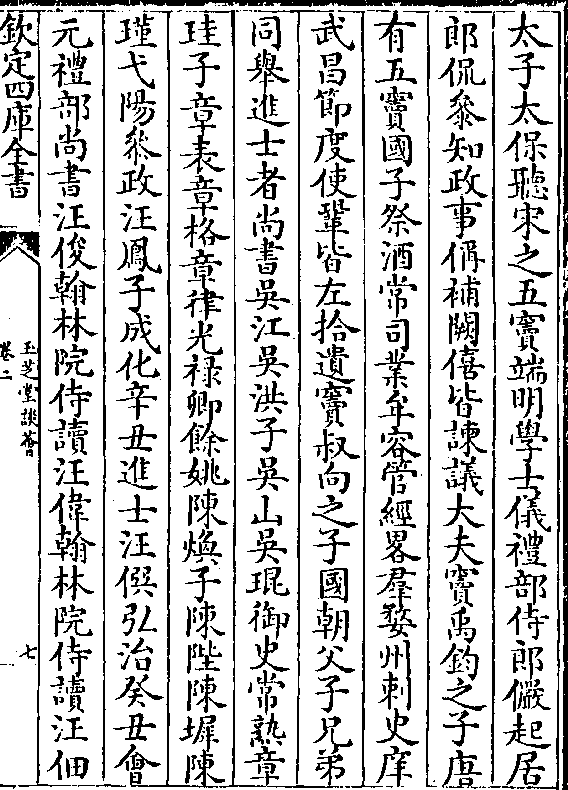 太子太保聽宋之五竇端明學士儀禮部侍郎儼起居
郎侃叅知政事偁補闕僖皆諫議大夫竇禹鈞之子唐
有五竇國子祭酒常司業牟容管經畧羣婺州刺史庠
武昌節度使鞏皆左拾遺竇叔向之子國朝父子兄弟
同舉進士者尚書吳江吳洪子吳山吳琨御史常熟章
珪子章表章格章律光禄卿餘姚陳煥子陳陛陳墀陳
瑾弋陽叅政汪鳳子成化辛丑進士汪僎弘治癸丑會
元禮部尚書汪俊翰林院侍讀汪偉翰林院侍讀汪佃
欽定四庫全書
玉芝堂談薈
卷二
七